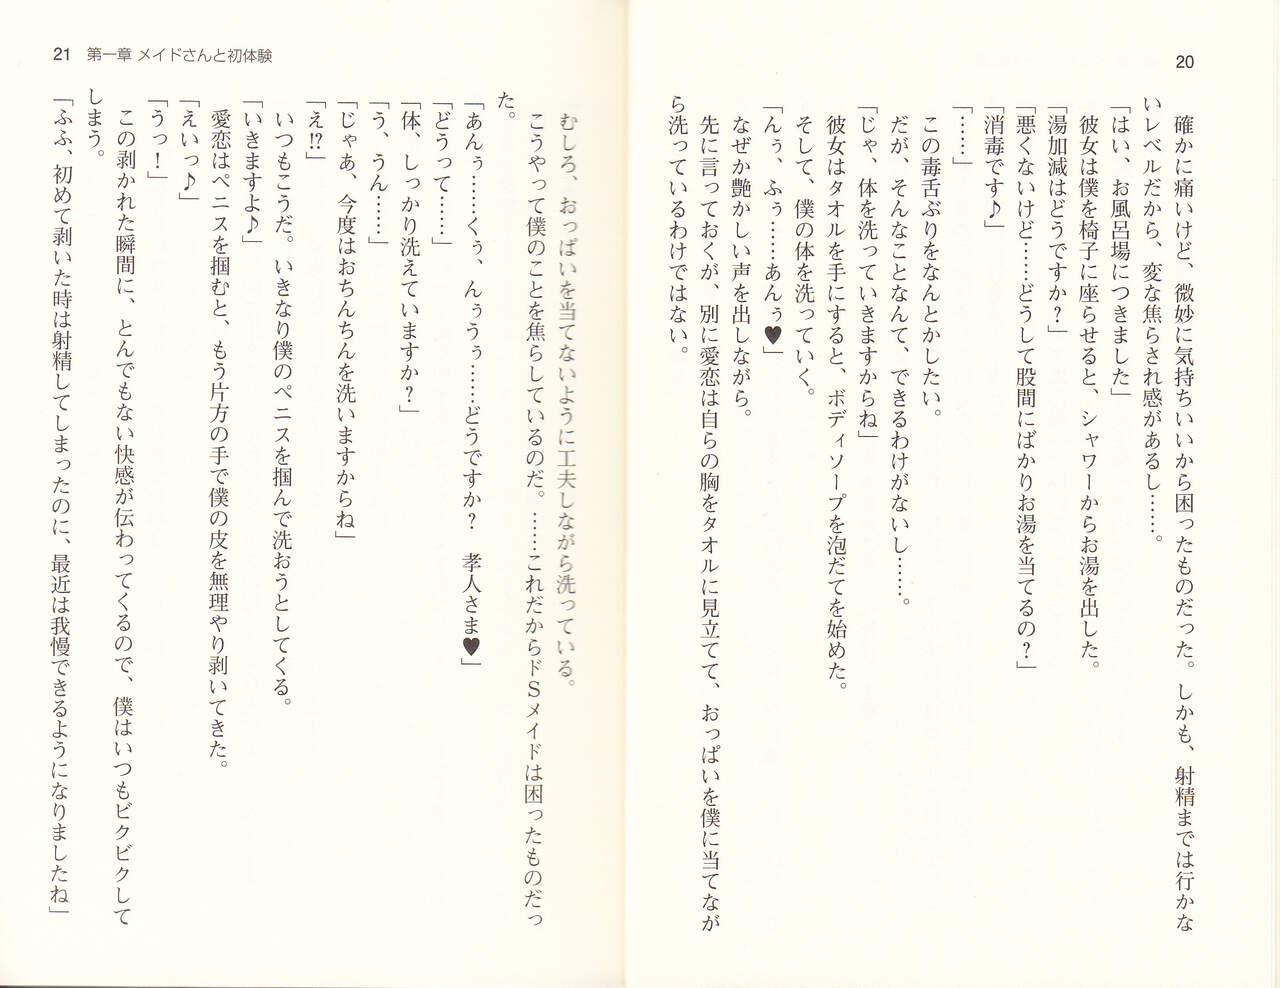 20
確かに痛いけど、微妙に気持ちいいから困ったものだった。しかも、射精までは行かな
いレベルだから、変な焦らされ感があるし……。
「はい、お風呂場につきました」
彼女は僕を椅子に座らせると、シャワーからお湯を出した。
「湯加減はどうですか？」
「悪くないけど……どうして股間にばかりお湯を当てるの？」
「消毒です♪」
「……」
この毒舌ぶりをなんとかしたい。
だが、そんなことなんて、できるわけがないし……。
「じゃ、体を洗っていきますからね」
彼女はタオルを手にすると、ボディソープを泡だてを始めた。
そして、僕の体を洗っていく。
「んぅ、ふぅ……あんぅ♥」
なぜか艶かしい声を出しながら。
先に言っておくが、別に愛恋は自らの胸をタオルに見立てて、おっぱいを僕に当てなが
ら洗っているわけではない。
21 第一章 メイドさんと初体験
むしろ、おっぱいを当てないように工夫しながら洗っている。
こうやって僕のことを焦らしているのだ。……これだからドＳメイドは困ったものだっ
た。
「あんぅ……くぅ、んぅうぅ……どうですか？　孝人さま♥」
「どうって……」
「体、しっかり洗えていますか？」
「う、うん……」
「じゃあ、今度はおちんちんを洗いますからね」
「え!?」
いつもこうだ。いきなり僕のペニスを掴んで洗おうとしてくる。
「いきますよ♪」
愛恋はペニスを掴むと、もう片方の手で僕の皮を無理やり剥いてきた。
「えいっ♪」
「うっ！」
この剥かれた瞬間に、とんでもない快感が伝わってくるので、僕はいつもビクビクして
しまう。
「ふふ、初めて剥いた時は射精してしまったのに、最近は我慢できるようになりましたね」